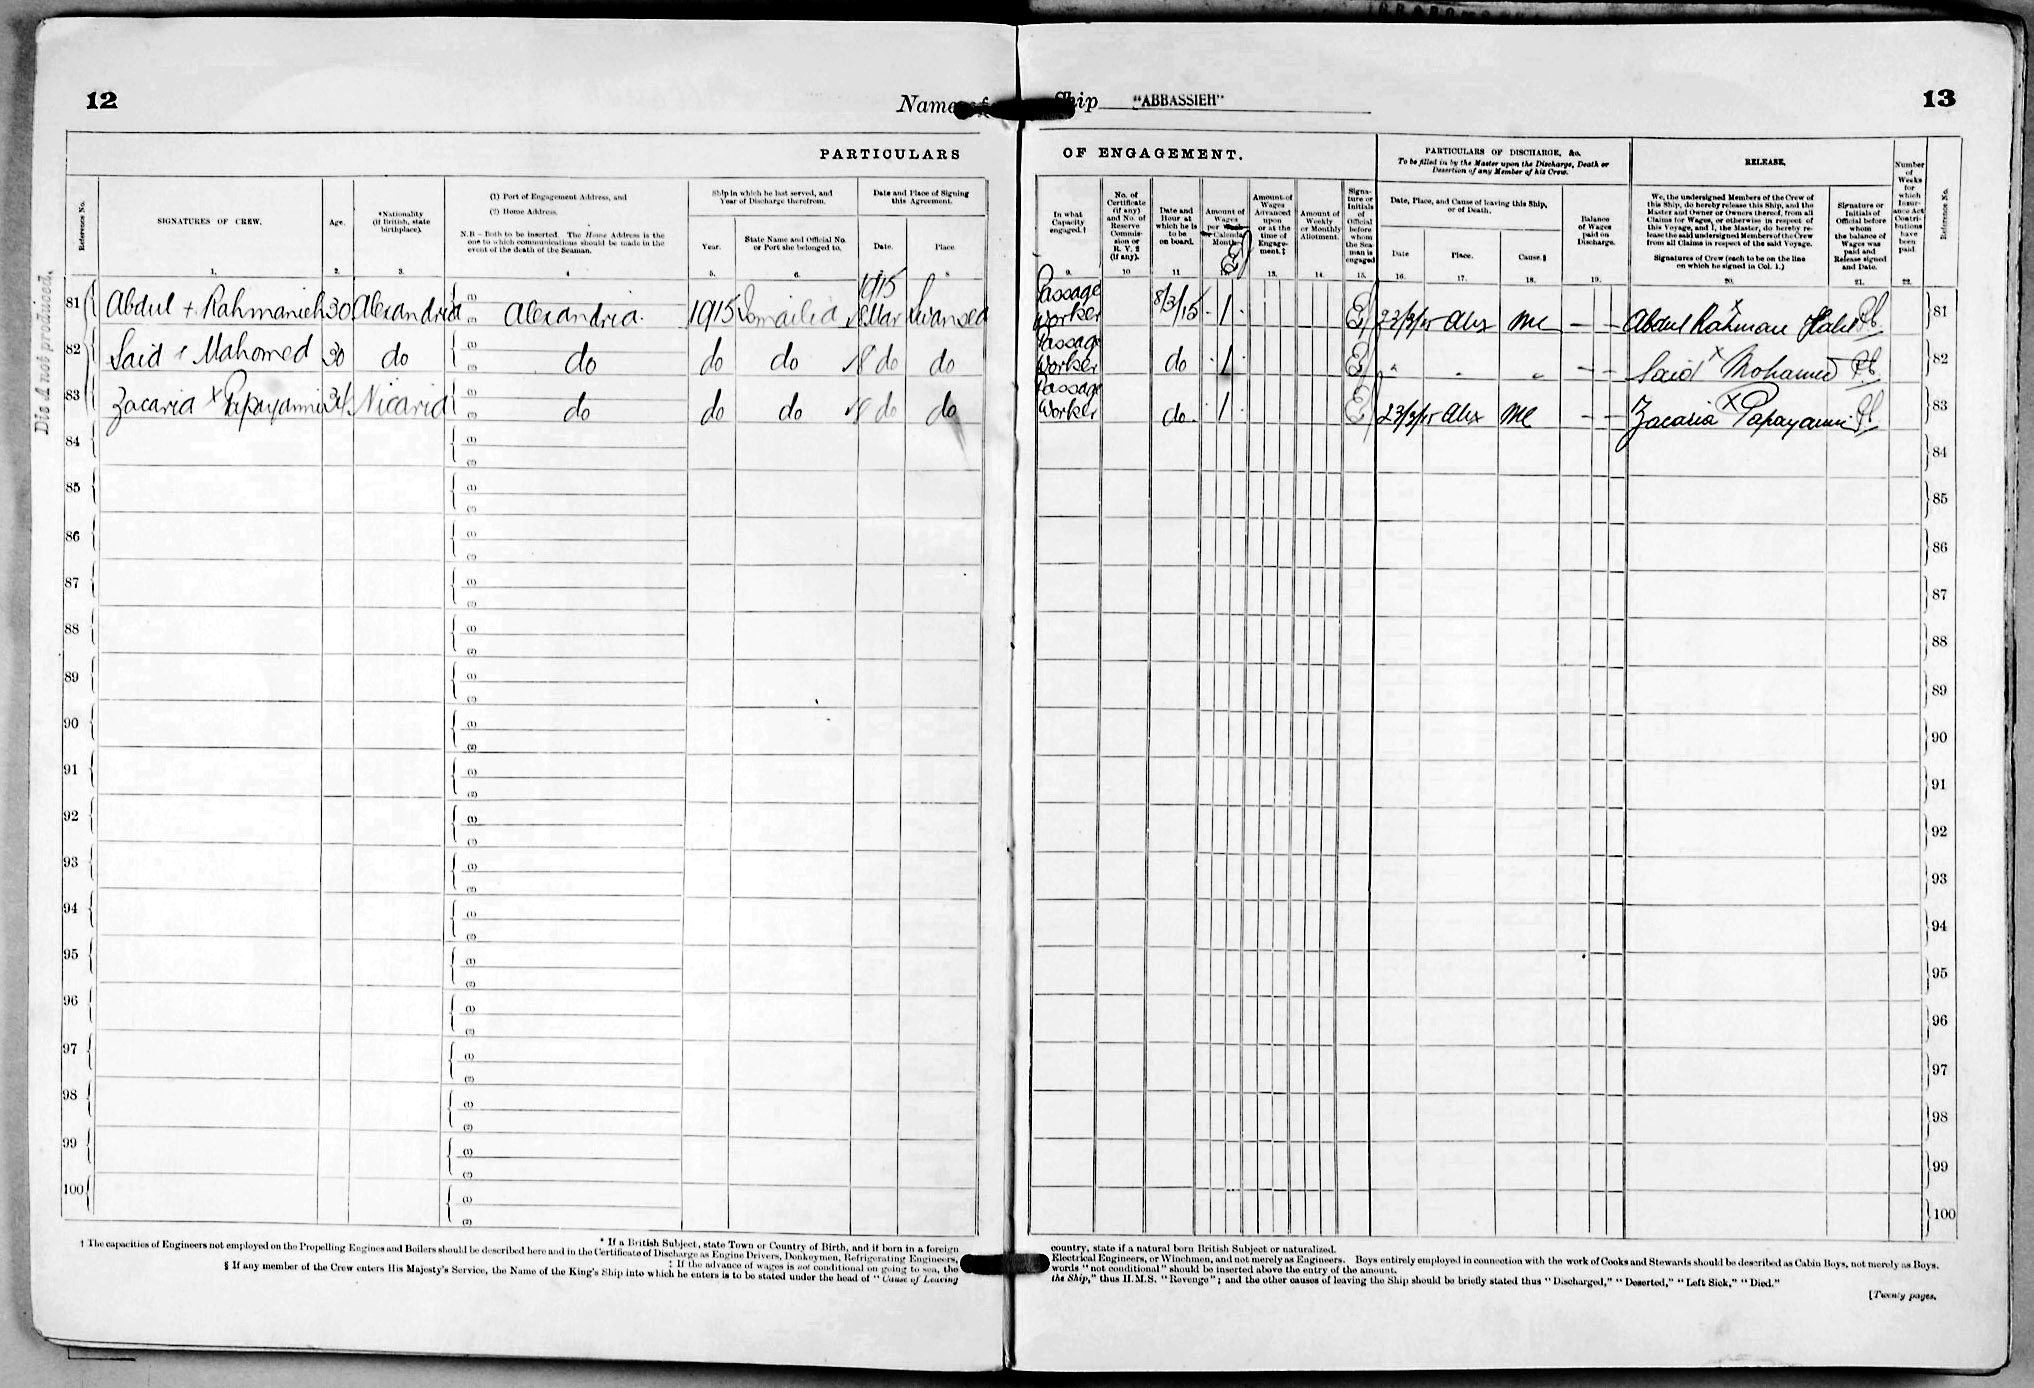 12
Name of
Ship "ABBASSIEH"
13
PARTICULARS
OF ENGAGEMENT.
PARTICULARS OF DISCHARGE, &c.
To be filled in by the Master upon the Discharge, Death or
Desertion of any Member of his Crew.
RELEASE.
Reference No.
SIGNATURES OF CREW.
1.
Age.
2.
*Nationality
(if British, state
birthplace).
3.
(1) Port of Engagement Address, and
(2) Home Address.
N.B.—Both to be inserted. The Home Address is the
one to which communications should be made in the
event of the death of the Seaman.
4
Ship in which he last served, and
Year of Discharge therefrom.
Year.
5.
State Name and Official No.
or Port she belonged to.
6.
Date and Place of Signing
this Agreement.
Date.
Place.
8
In what
Capacity
engaged.†
9.
No. of
Certificate
(if any)
and No. of
Reserve
Commis-
sion or
R. V. 2
(if any).
10
Date and
Hour at
which he is
to be
on board.
11
Amount of
Wages
per
Calendar
Month.
12.
Amount of
Wages
Advanced
upon
or at the
time of
Engage-
ment.‡
13.
Amount of
Weekly
or Monthly
Allotment.
14.
Signa-
ture or
Initials
of
Official
before
whom
the Sea-
man is
engaged
15.
Date, Place, and Cause of leaving this Ship,
or of Death.
Date
16.
Place.
17.
Cause.§
18.
Balance
of Wages
paid on
Discharge.
19.
We, the undersigned Members of the Crew of
this Ship, do hereby release this Ship, and the
Master and Owner or Owners thereof, from all
Claims for Wages, or otherwise in respect of
this Voyage, and I, the Master, do hereby re-
lease the said undersigned Members of the Crew
from all Claims in respect of the said Voyage.
Signatures of Crew (each to be on the line
on which he signed in Col. 1.)
20.
Signature or
Initials of
Official before
whom
the balance of
Wages was
paid and
Release signed
and Date.
21.
Number
of
Weeks
for
which
Insur-
ance Act
Contri-
butions
have
been
paid.
22.
Reference No.
Dis A not produced.
1915
81 Abdul + Rahmanieh 30 Alexandria (1) (2) Alexandria. 1915 Ismailia 8 Mar Swansea Passage Worker 8/3/15 1 23/3/15 Alex Abdul x Rahman 81
82 Said Mahomed 30 do (1) (2) do do do 8 do do Passage Worker do 1 " " " — — Said x Mohamed 82
83 Zacaria x Papayanni 34 Nicaria (1) (2) do do do 8 do do Passage Worker do. 1 23/3/15 Alex — — Zacaria x Papayanni 83
84 (1) (2) 84
85 (1) (2) 85
86 (1) (2) 86
87 (1) (2) 87
88 (1) (2) 88
89 (1) (2) 89
90 (1) (2) 90
91 (1) (2) 91
92 (1) (2) 92
93 (1) (2) 93
94 (1) (2) 94
95 (1) (2) 95
96 (1) (2) 96
97 (1) (2) 97
98 (1) (2) 98
99 (1) (2) 99
100 (1) (2) 100
* If a British Subject, state Town or Country of Birth, and if born in a foreign
† The capacities of Engineers not employed on the Propelling Engines and Boilers should be described here and in the Certificate of Discharge as Engine Drivers, Donkeymen, Refrigerating Engineers,
‡ If the advance of wages is not conditional on going to sea, the
§ If any member of the Crew enters His Majesty's Service, the Name of the King's Ship into which he enters is to be stated under the head of "Cause of Leaving
country, state if a natural born British Subject or naturalized.
Electrical Engineers, or Winchmen, and not merely as Engineers. Boys entirely employed in connection with the work of Cooks and Stewards should be described as Cabin Boys, not merely as Boys.
words "not conditional" should be inserted above the entry of the amount.
the Ship," thus H.M.S. "Revenge"; and the other causes of leaving the Ship should be briefly stated thus "Discharged," "Deserted," "Left Sick," "Died."
[Twenty pages.